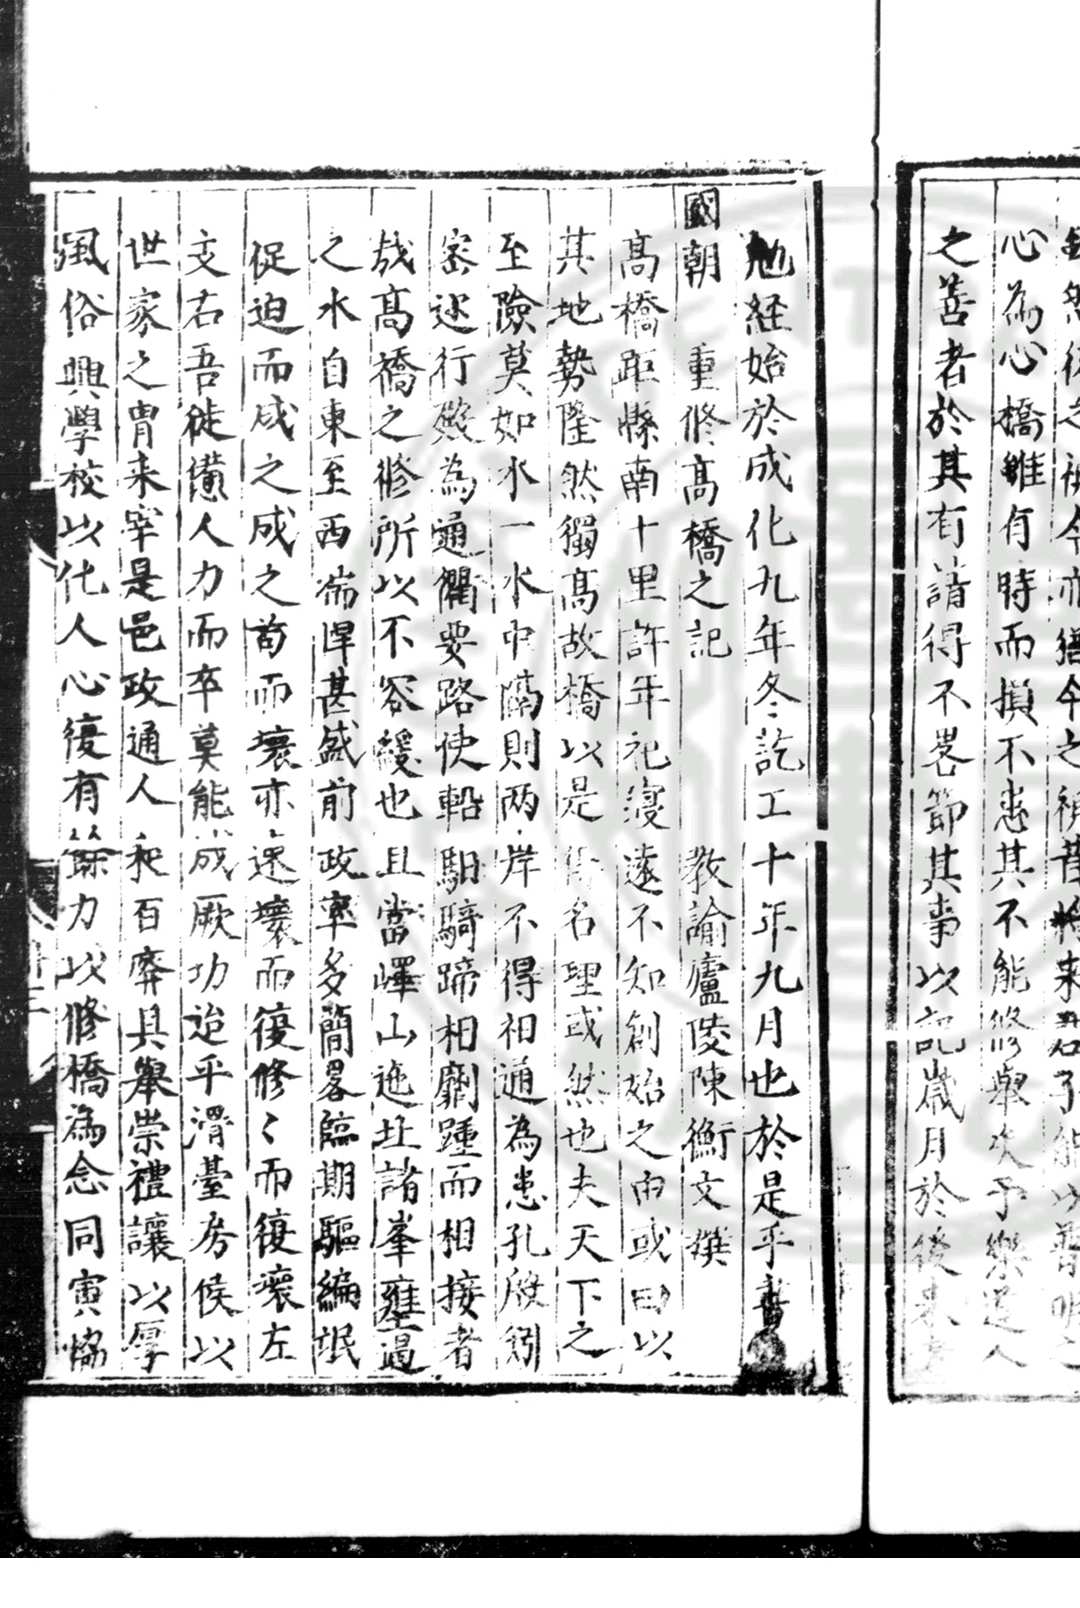 之善者於其有請得不畧節其事以記歲月於後
心為心橋雖有時而損不患其不能修舉次予樂道人
勉経始於成化九年冬訖工十年九月也於是乎書
國朝 重修髙橋之記 教諭廬陵陳衡文撰
髙橋距縣南十里許年祀寖遠不知創始之由或曰以
其地勢隆然獨髙故橋以是得名理或然也夫天下之
至險莫如水一水中隔則两岸不得相通為患孔殷矧
宻迩行殿為通衢要路使軺馹騎蹄相劘踵而相接者
哉髙橋之修所以不容緩也且當嶧山迤北諸峯壅遏
之水自東至西湍悍甚盛前政率多簡畧臨期驅編氓
促迫而成之成之苟而壞亦速壞而復修〻而復壞左
支右吾徒備人力而卒莫能成厥功迨平滑臺房侯以
世家之胄来宰是邑政通人和百廢具舉崇禮讓以厚
風俗興學校以化人心復有餘力以修橋為念同寅恊